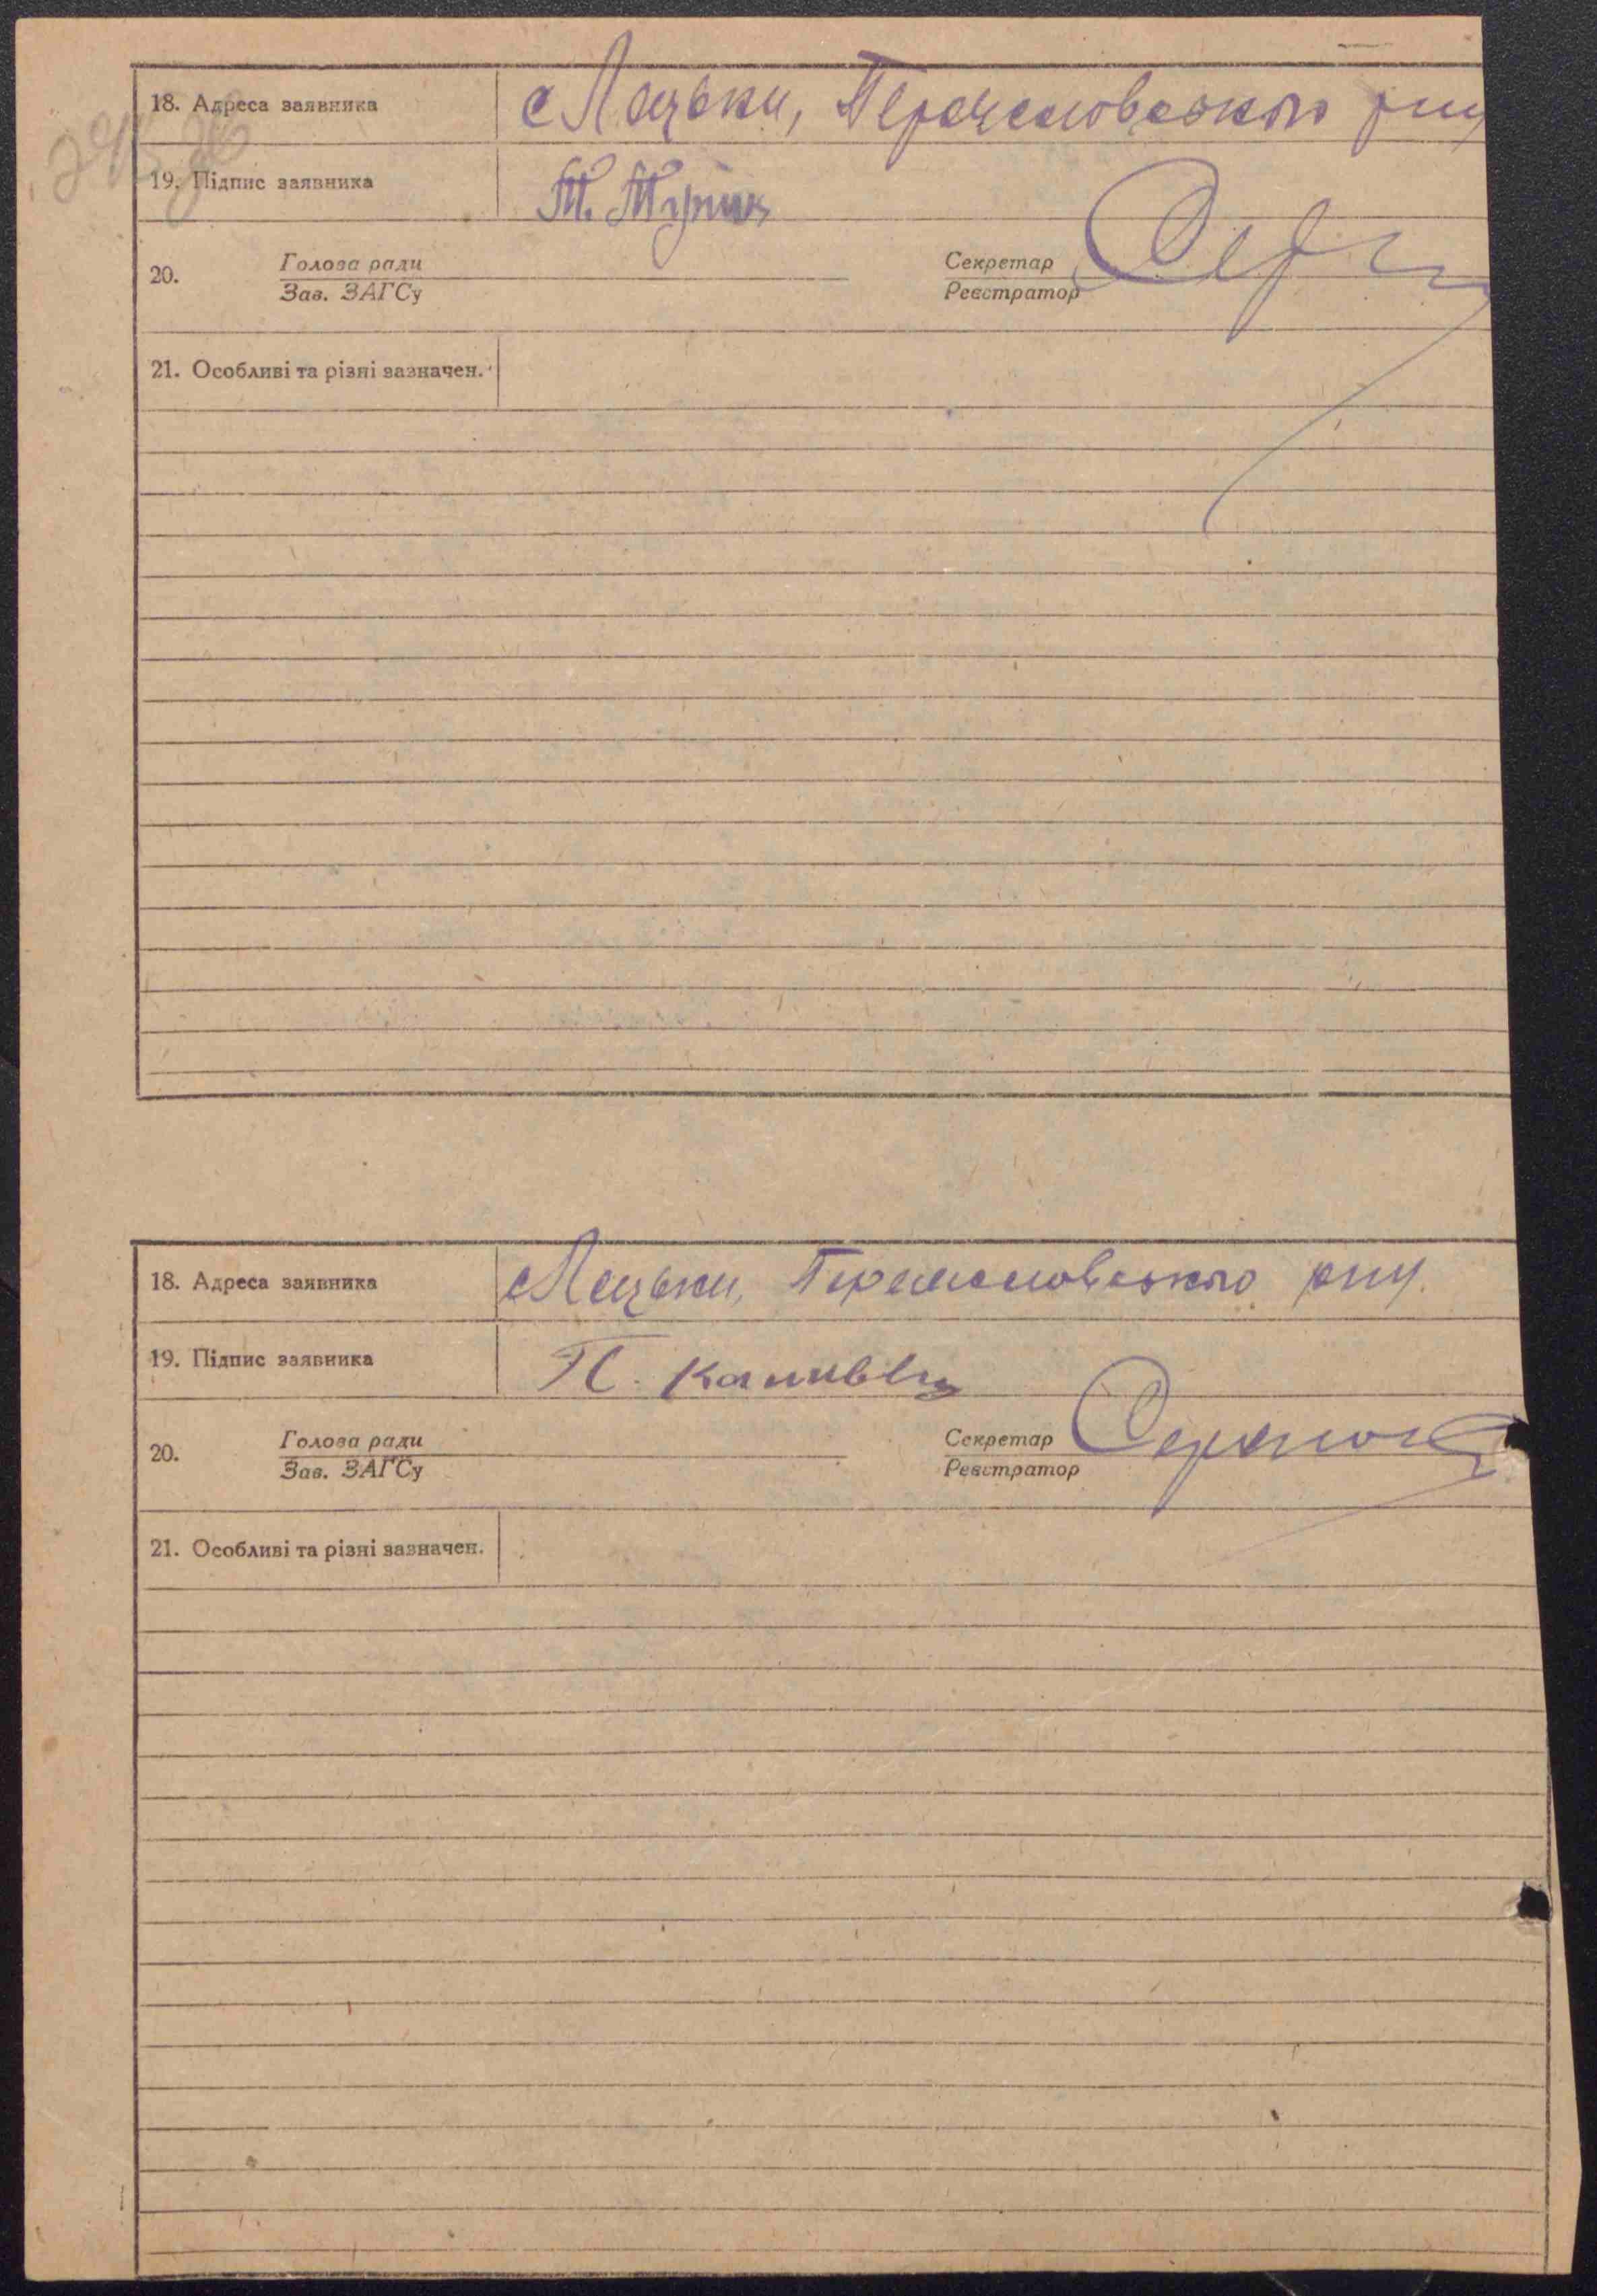 18. Адреса заявника с Лецьки, Переяславського р-ну
19. Підпис заявника Т.
20. Голова ради Секретар
Зав. ЗАГСу Реєстратор
21. Особливі та різні зазначен.
18. Адреса заявника с Лецьки, Переяславського р-ну.
19. Підпис заявника П.
20. Голова ради Секретар
Зав. ЗАГСу Реєстратор
21. Особливі та різні зазначен.